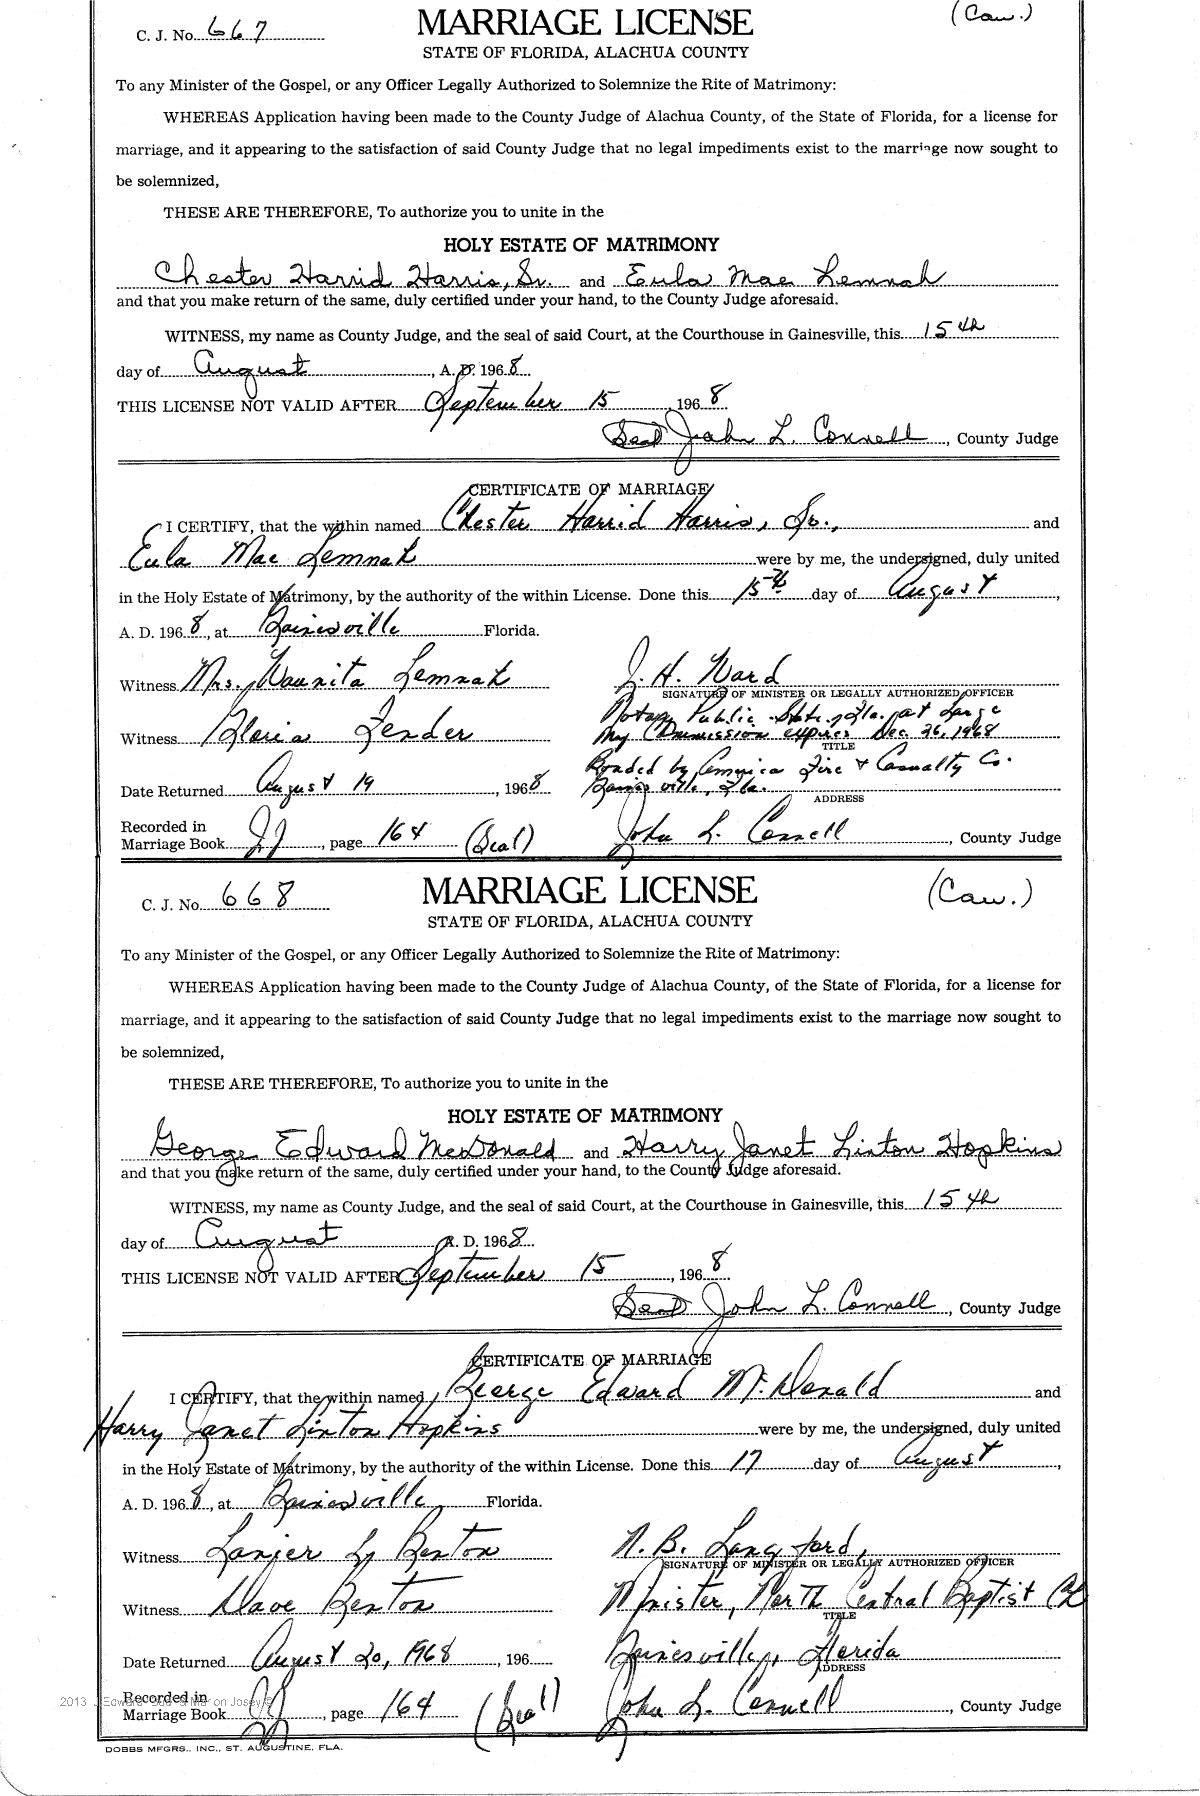 C. J. No. 667 MARRIAGE LICENSE (Cau.)
STATE OF FLORIDA, ALACHUA COUNTY
To any Minister of the Gospel, or any Officer Legally Authorized to Solemnize the Rite of Matrimony:
WHEREAS Application having been made to the County Judge of Alachua County, of the State of Florida, for a license for
marriage, and it appearing to the satisfaction of said County Judge that no legal impediments exist to the marriage now sought to
be solemnized,
THESE ARE THEREFORE, To authorize you to unite in the
HOLY ESTATE OF MATRIMONY
Chester Harrid Harris, Sr. and Eula Mae Lemnah
and that you make return of the same, duly certified under your hand, to the County Judge aforesaid.
WITNESS, my name as County Judge, and the seal of said Court, at the Courthouse in Gainesville, this 15th
day of August, A. D. 1968
THIS LICENSE NOT VALID AFTER September 15, 1968
(Seal) John L. Connell, County Judge
CERTIFICATE OF MARRIAGE
I CERTIFY, that the within named Chester Harrid Harris, Sr., and
Eula Mae Lemnah were by me, the undersigned, duly united
in the Holy Estate of Matrimony, by the authority of the within License. Done this 15th day of August,
A. D. 1968, at Gainesville Florida.
Witness Mrs. Waunita Lemnah J. H. Ward
SIGNATURE OF MINISTER OR LEGALLY AUTHORIZED OFFICER
Notary Public State, Fla. at Large
Witness Gloria Fender My Commission expires Dec. 26, 1968
TITLE
Bonded by America Fire & Casualty Co.
Date Returned August 19, 1968 Gainesville, Fla.
ADDRESS
Recorded in
Marriage Book JJ, page 164 (Seal) John L. Connell, County Judge
C. J. No. 668 MARRIAGE LICENSE (Cau.)
STATE OF FLORIDA, ALACHUA COUNTY
To any Minister of the Gospel, or any Officer Legally Authorized to Solemnize the Rite of Matrimony:
WHEREAS Application having been made to the County Judge of Alachua County, of the State of Florida, for a license for
marriage, and it appearing to the satisfaction of said County Judge that no legal impediments exist to the marriage now sought to
be solemnized,
THESE ARE THEREFORE, To authorize you to unite in the
HOLY ESTATE OF MATRIMONY
George Edward McDonald and Harry Janet Linton Hopkins
and that you make return of the same, duly certified under your hand, to the County Judge aforesaid.
WITNESS, my name as County Judge, and the seal of said Court, at the Courthouse in Gainesville, this 15th
day of August A. D. 1968
THIS LICENSE NOT VALID AFTER September 15, 1968
(Seal) John L. Connell, County Judge
CERTIFICATE OF MARRIAGE
I CERTIFY, that the within named George Edward McDonald and
Harry Janet Linton Hopkins were by me, the undersigned, duly united
in the Holy Estate of Matrimony, by the authority of the within License. Done this 17 day of August,
A. D. 1968, at Gainesville, Florida.
Witness Lanier L. Benton N. B. Langford,
SIGNATURE OF MINISTER OR LEGALLY AUTHORIZED OFFICER
Witness Dave Benton Minister, North Central Baptist Ch
TITLE
Date Returned August 20, 1968, 196 Gainesville, Florida
ADDRESS
Recorded in
Marriage Book JJ, page 164 (Seal) John L. Connell, County Judge
DOBBS MFGRS., INC., ST. AUGUSTINE, FLA.